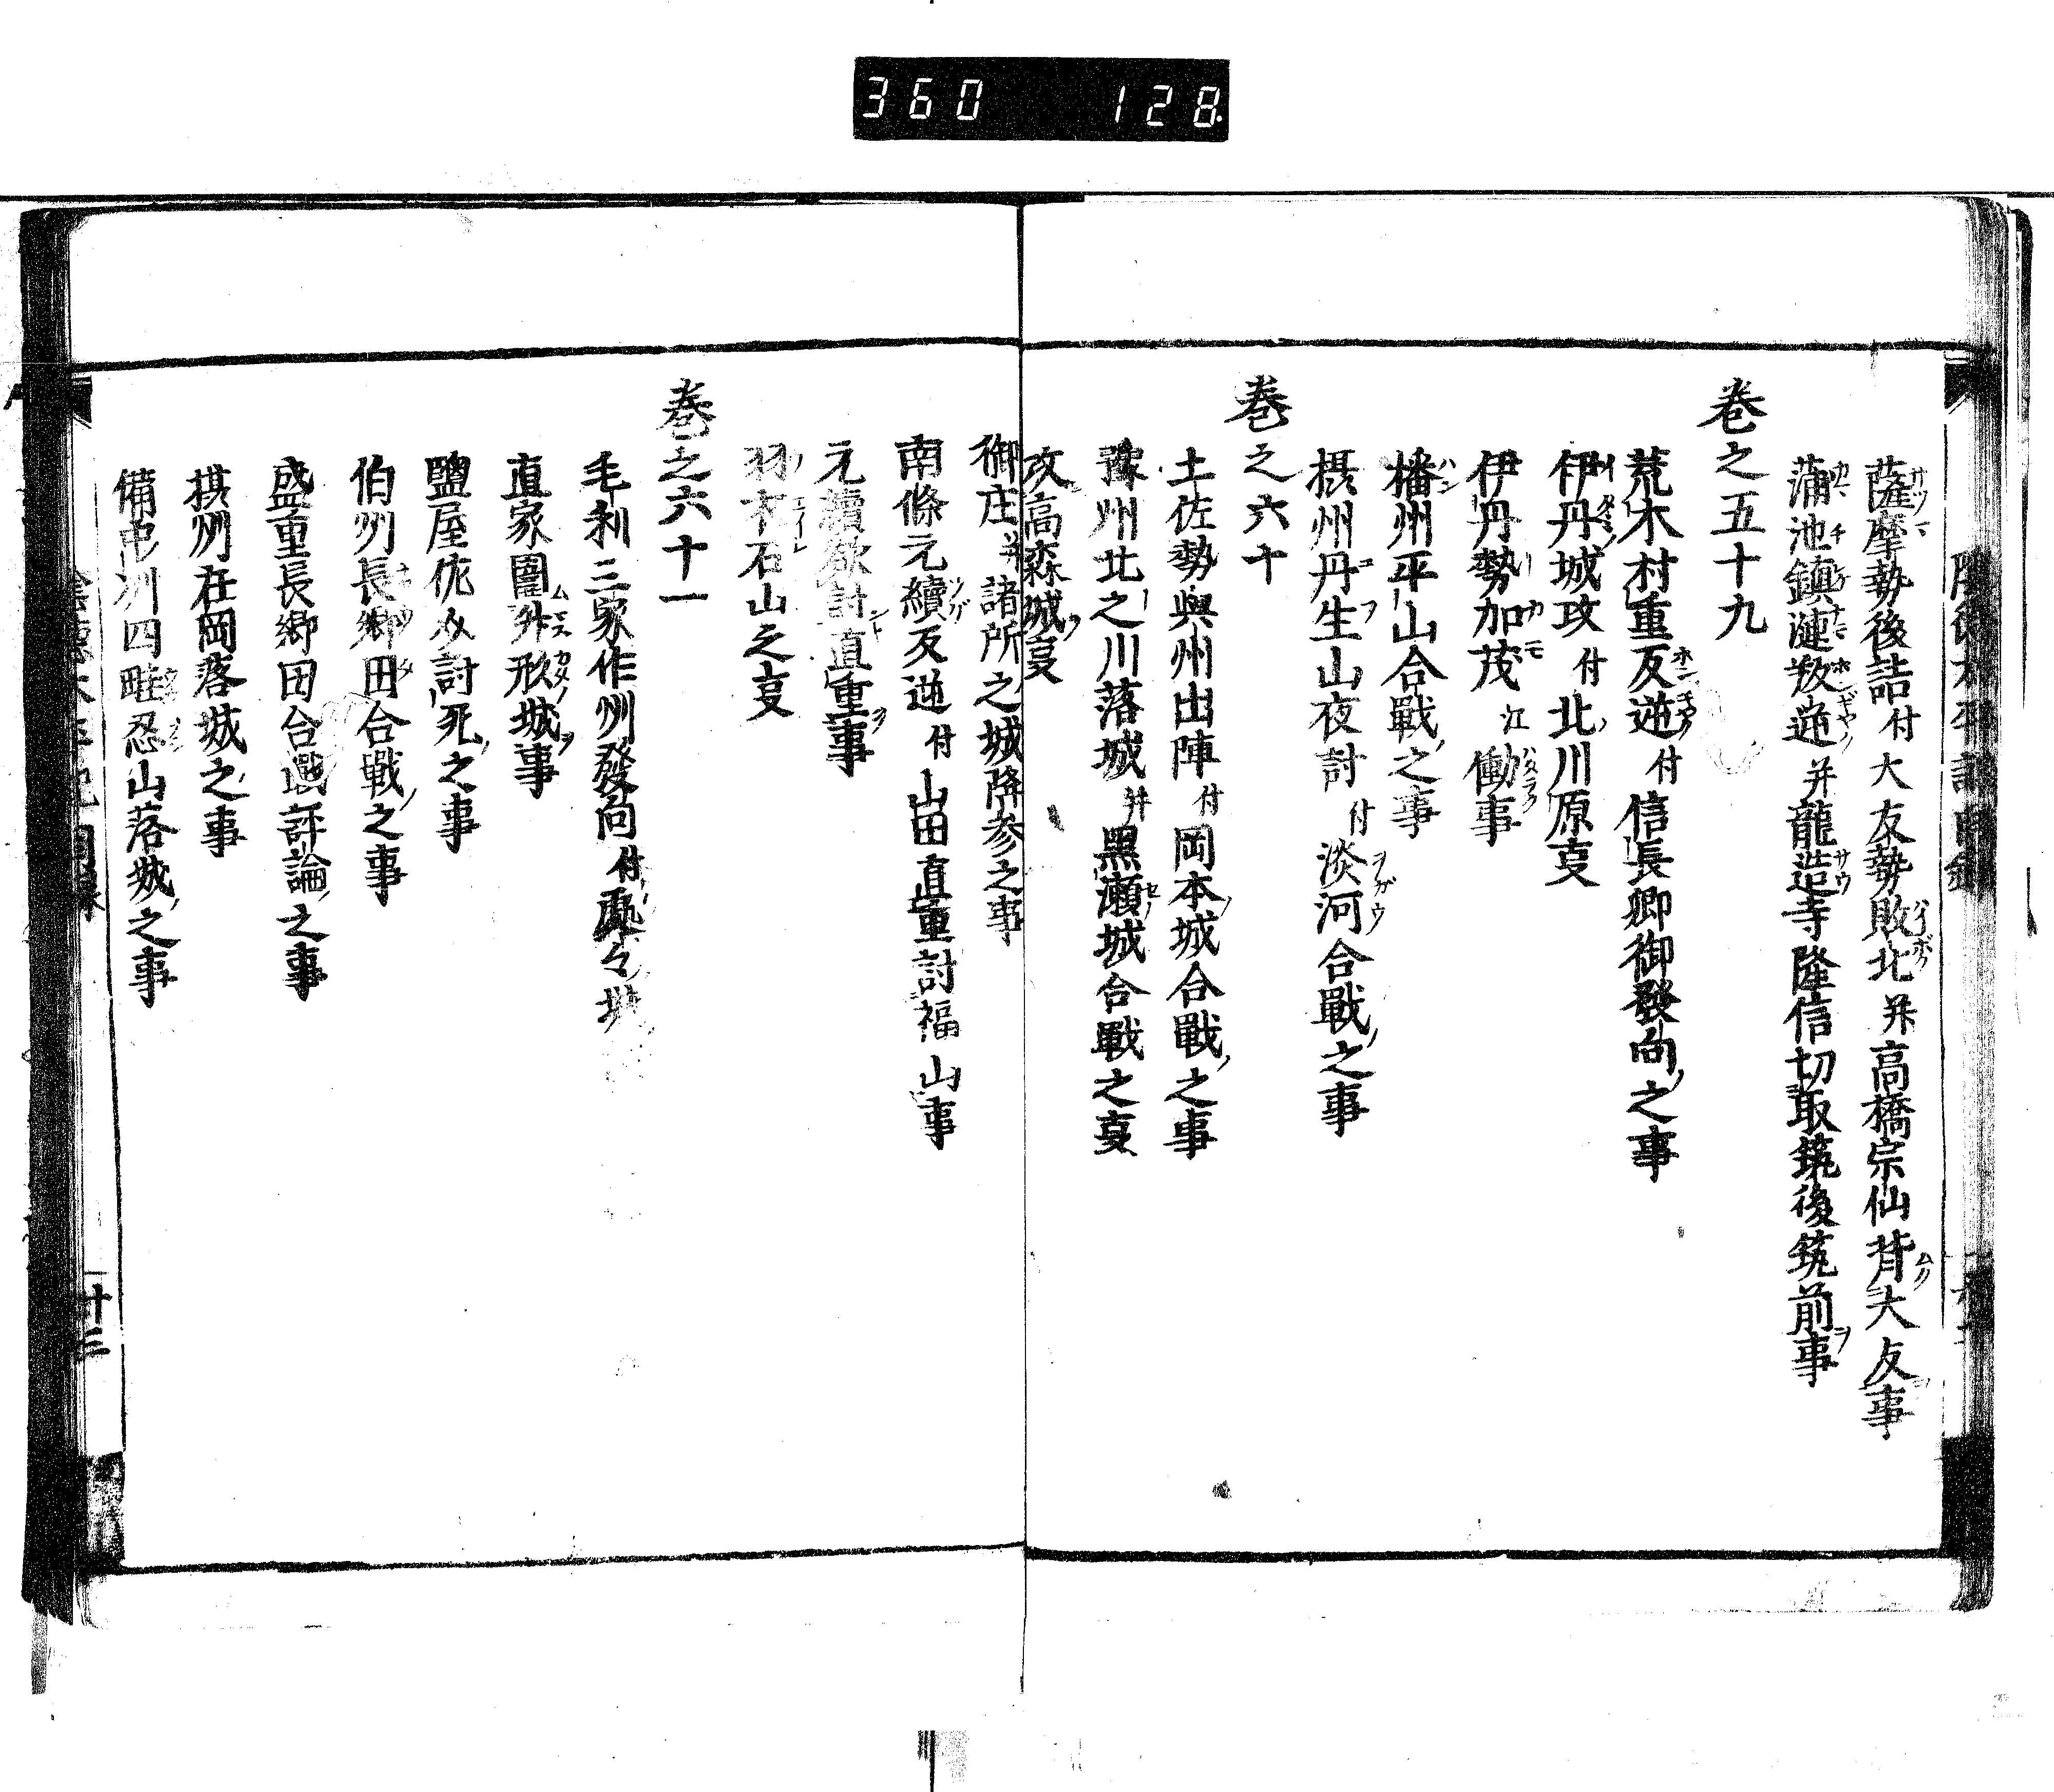 360 128
薩摩勢後詰付大友勢敗北并高橋宗仙背大友事
蒲池鎮漣叛逆并龍造寺隆信切取筑後筑前事
巻之五十九
荒木村重反逆付信長卿御發向之事
伊丹城攻付北川原叓
伊丹勢加茂江働事
播州平山合戰之事
摂州丹生山夜討付淡河合戰之事
巻之六十
土佐勢與州出陣付岡本城合戰之事
豫州北之川落城并黒瀬城合戰之叓
攻高森城叓
御庄并諸所之城降参之事
南條元續反逆付山田直重討福山事
元續欲討直重事
羽衣石山之叓
巻之六十一
毛利三家作州發向付處々城
直家圍外形城事
鹽屋佐討死之事
伯州長郷田合戰之事
盛重長郷田合戰評論之事
摂州在岡落城之事
備中州四畦忍山落城之事
十三